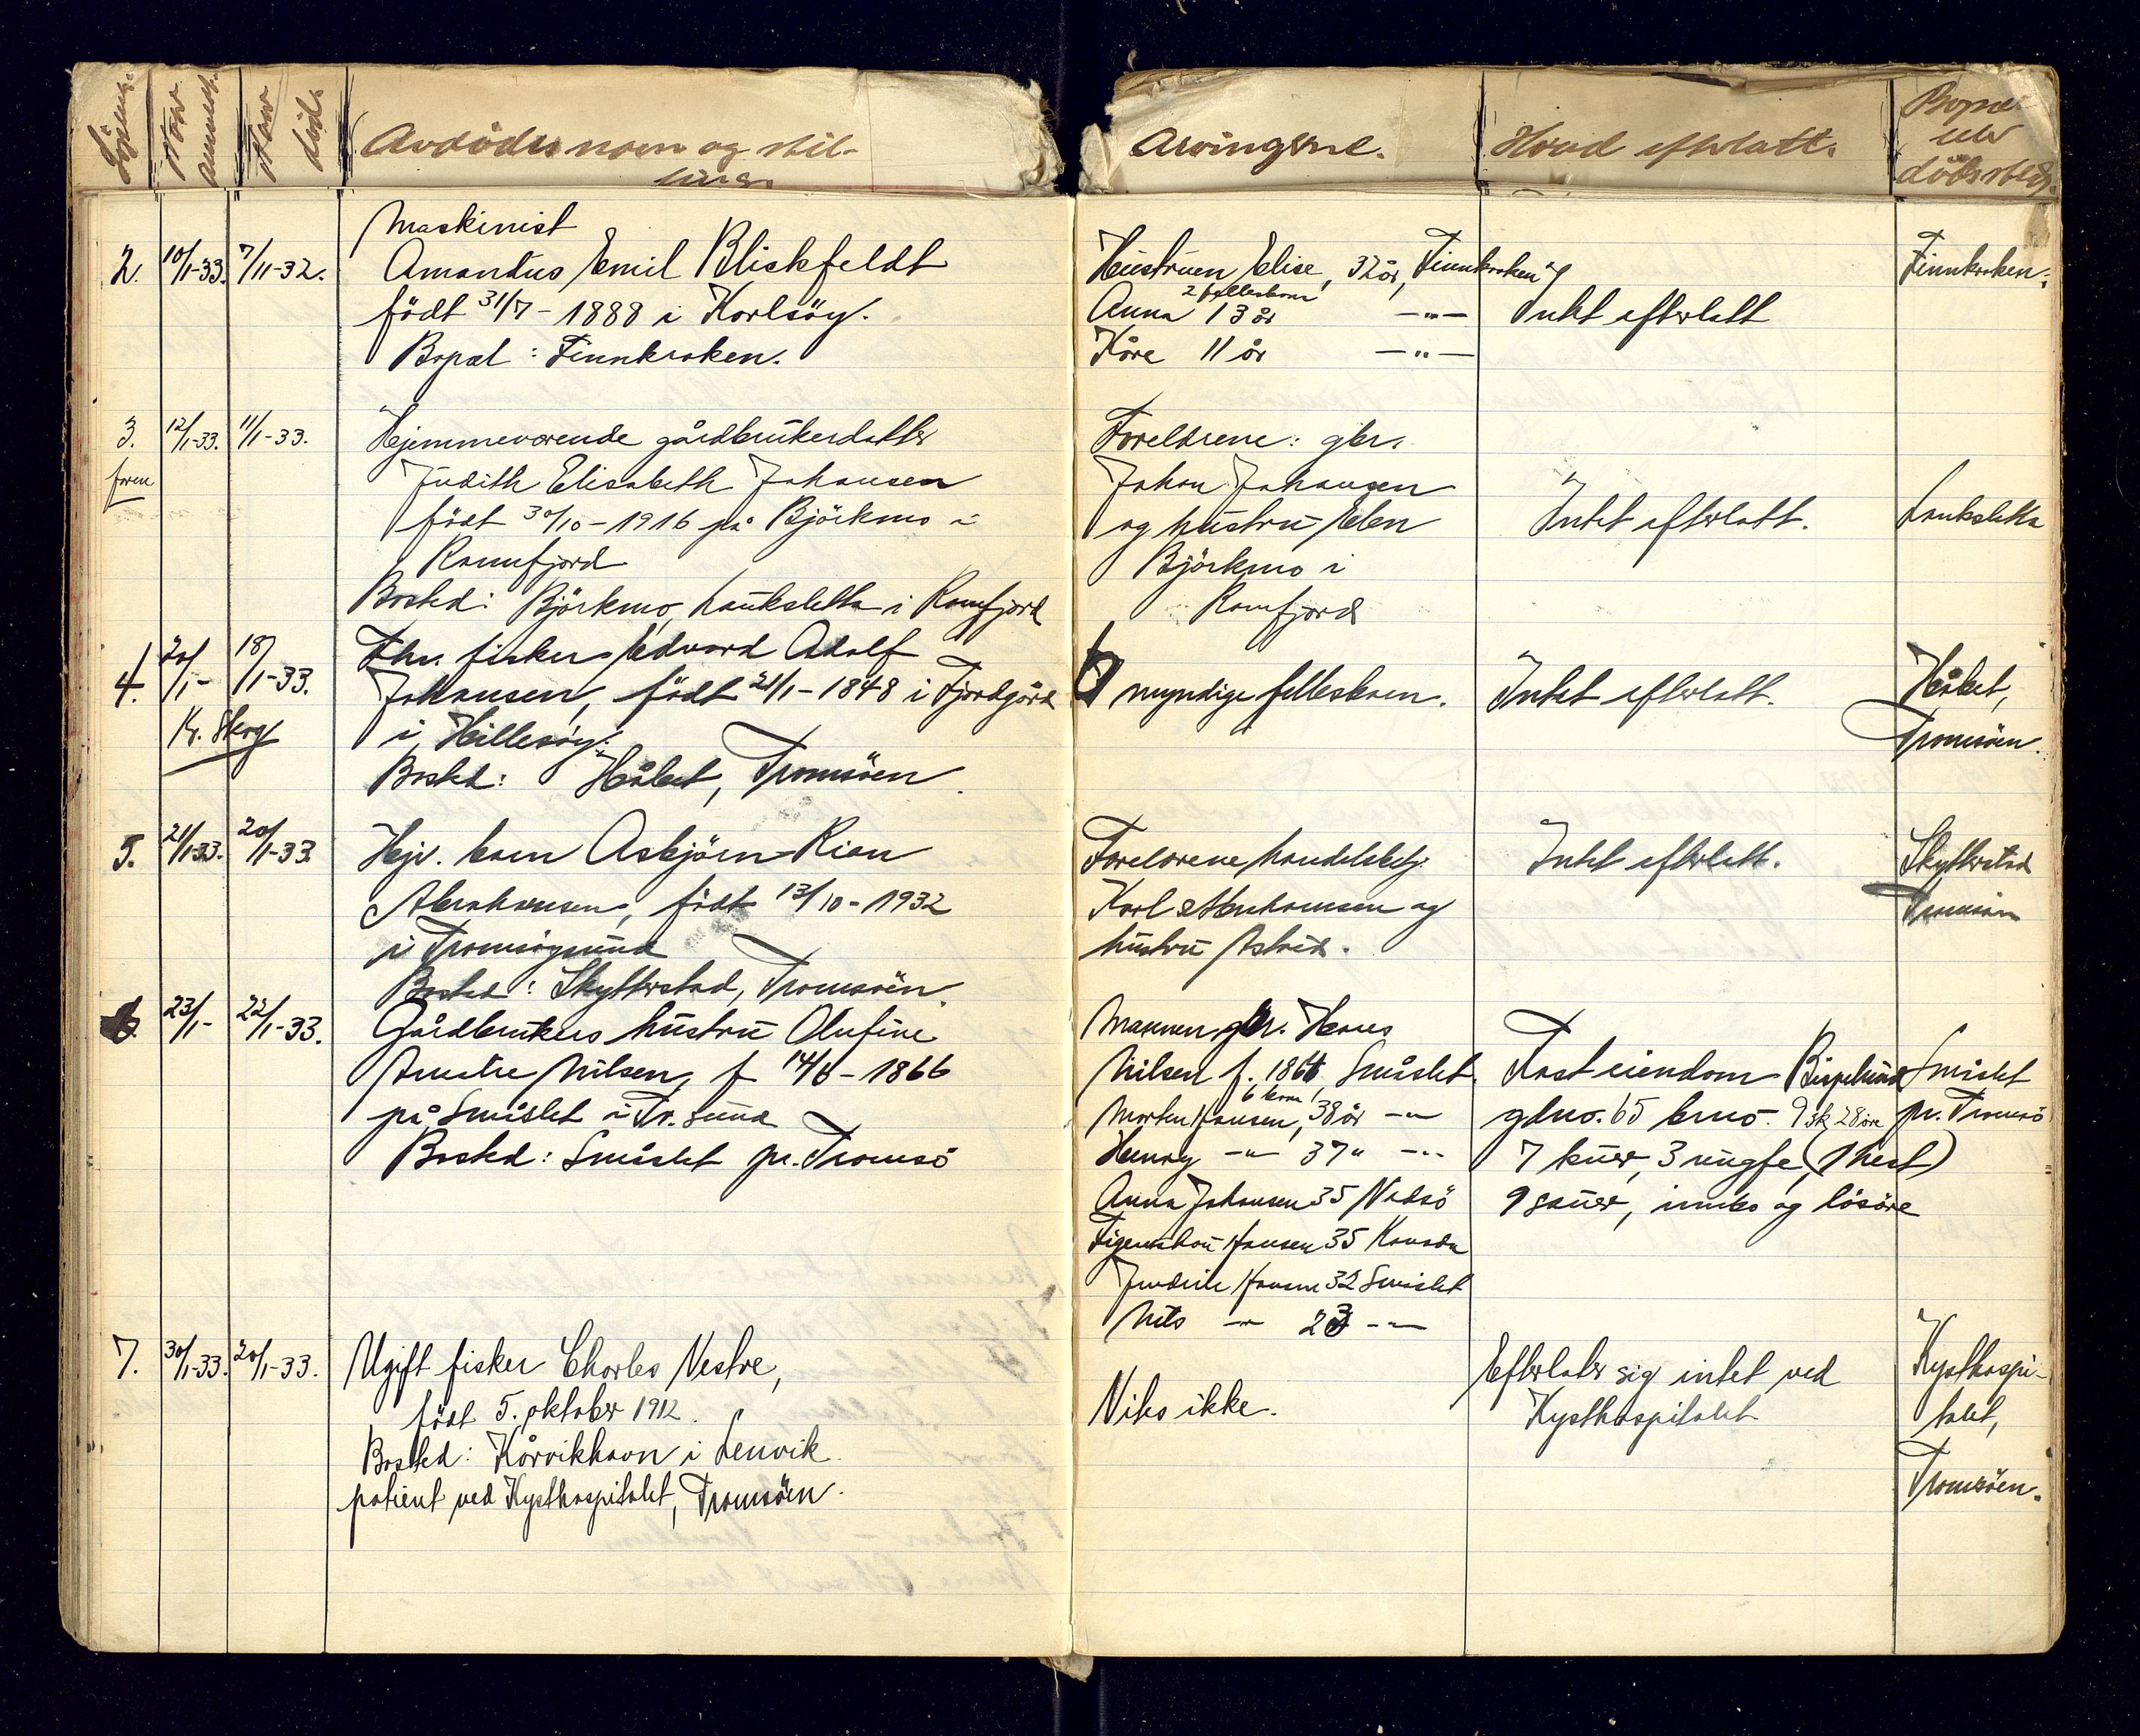 Når
Når
död.
Avdödes navn og stil-
ling.
Arvingene.
Hvad efterlatt.
Bopæl
eller
dödssted.
Maskinist
2. 10/1-33. 7/11-32. Amandus Emil Blickfeldt
födt 31/7-1888 i Karlsöy.
Bopæl: Finnkroken.
Hustruen Elise, 32 år, Finnkroken og
2 fellesbarn
Anna 13 år -"-
Kåre 11 år -"-
Intet efterlatt
Finnkroken.
3. 12/1-33. 11/1-33. Hjemmeværende gårdbrukerdatter
Judith Elisabeth Johansen
födt 30/10-1916 på Björkmo i
Ramfjord
Bosted: Björkmo, Lauksletta i Ramfjord
Foreldrene: gbr.
Johan Johansen
og hustru Elen
Björkmo i
Ramfjord
Intet efterlatt.
Lauksletta
4. 20/1- 18/1-33. Fhv. fisker Edvard Adolf
Johansen, födt 21/1-1848 i Fjordgård
Kr. Skog
i Hillesöy.
Bosted: Håbet, Tromsöen.
6 myndige fellesbarn.
Intet efterlatt.
Håbet,
Tromsöen.
5. 21/1-33. 20/1-33. Hjv. barn Asbjörn Rian
Abrahamsen, födt 13/10-1932
i Tromsöysund
Bosted: Skytterstad, Tromsöen.
Foreldrene handelsbetj.
Karl Abrahamsen og
hustru Astrid.
Intet efterlatt.
Skytterstad
Tromsöen
6. 23/1- 22/1-33. Gårdbrukers hustru Olufine
Nilsen, f 14/6-1866
på Småslet i Tr.sund
Bosted: Småslet pr. Tromsö
Mannen gbr. Hans
Nilsen f. 1866, Småslet.
6 barn
Morten Hansen, 38 år -"-
Henry -"- 37 " -"-
Anna Johansen 35 Vadsö
Figenschau Hansen 35 Kanada
Hansen 32 Småslet
Nils -"- 23 -"-
Fast eiendom Bispelund
gdno. 65 bno. 9 sk. 28 öre
7 kuer, 3 ungfe, (1 hest)
9 sauer, innbo og lösöre
Småslet
pr. Tromsö
7. 30/1-33. 20/1-33. Ugift fisker Charles Nestve,
födt 5. oktober 1912.
Bosted: Kårvikhavn i Lenvik.
patient ved Kysthospitalet, Tromsöen.
Vites ikke.
Efterlater sig intet ved
Kysthospitalet
Kysthospi-
talet,
Tromsöen.